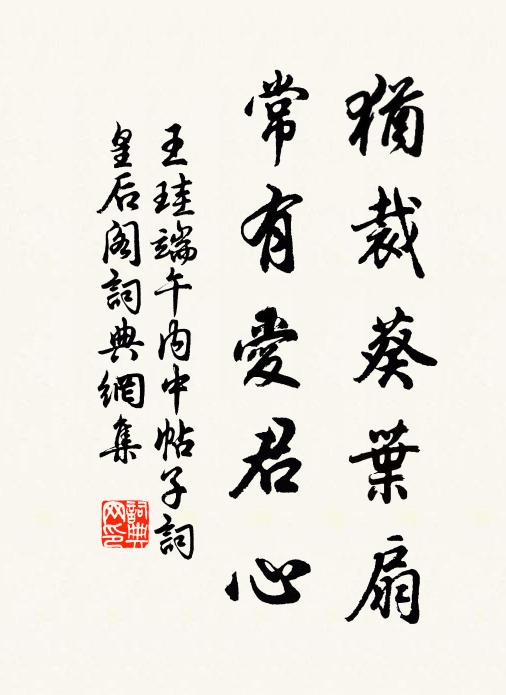 猶裁葵葉扇
常有愛君心
王珪端午内中帖子詞
皇后阁詞典網集
詞典网印